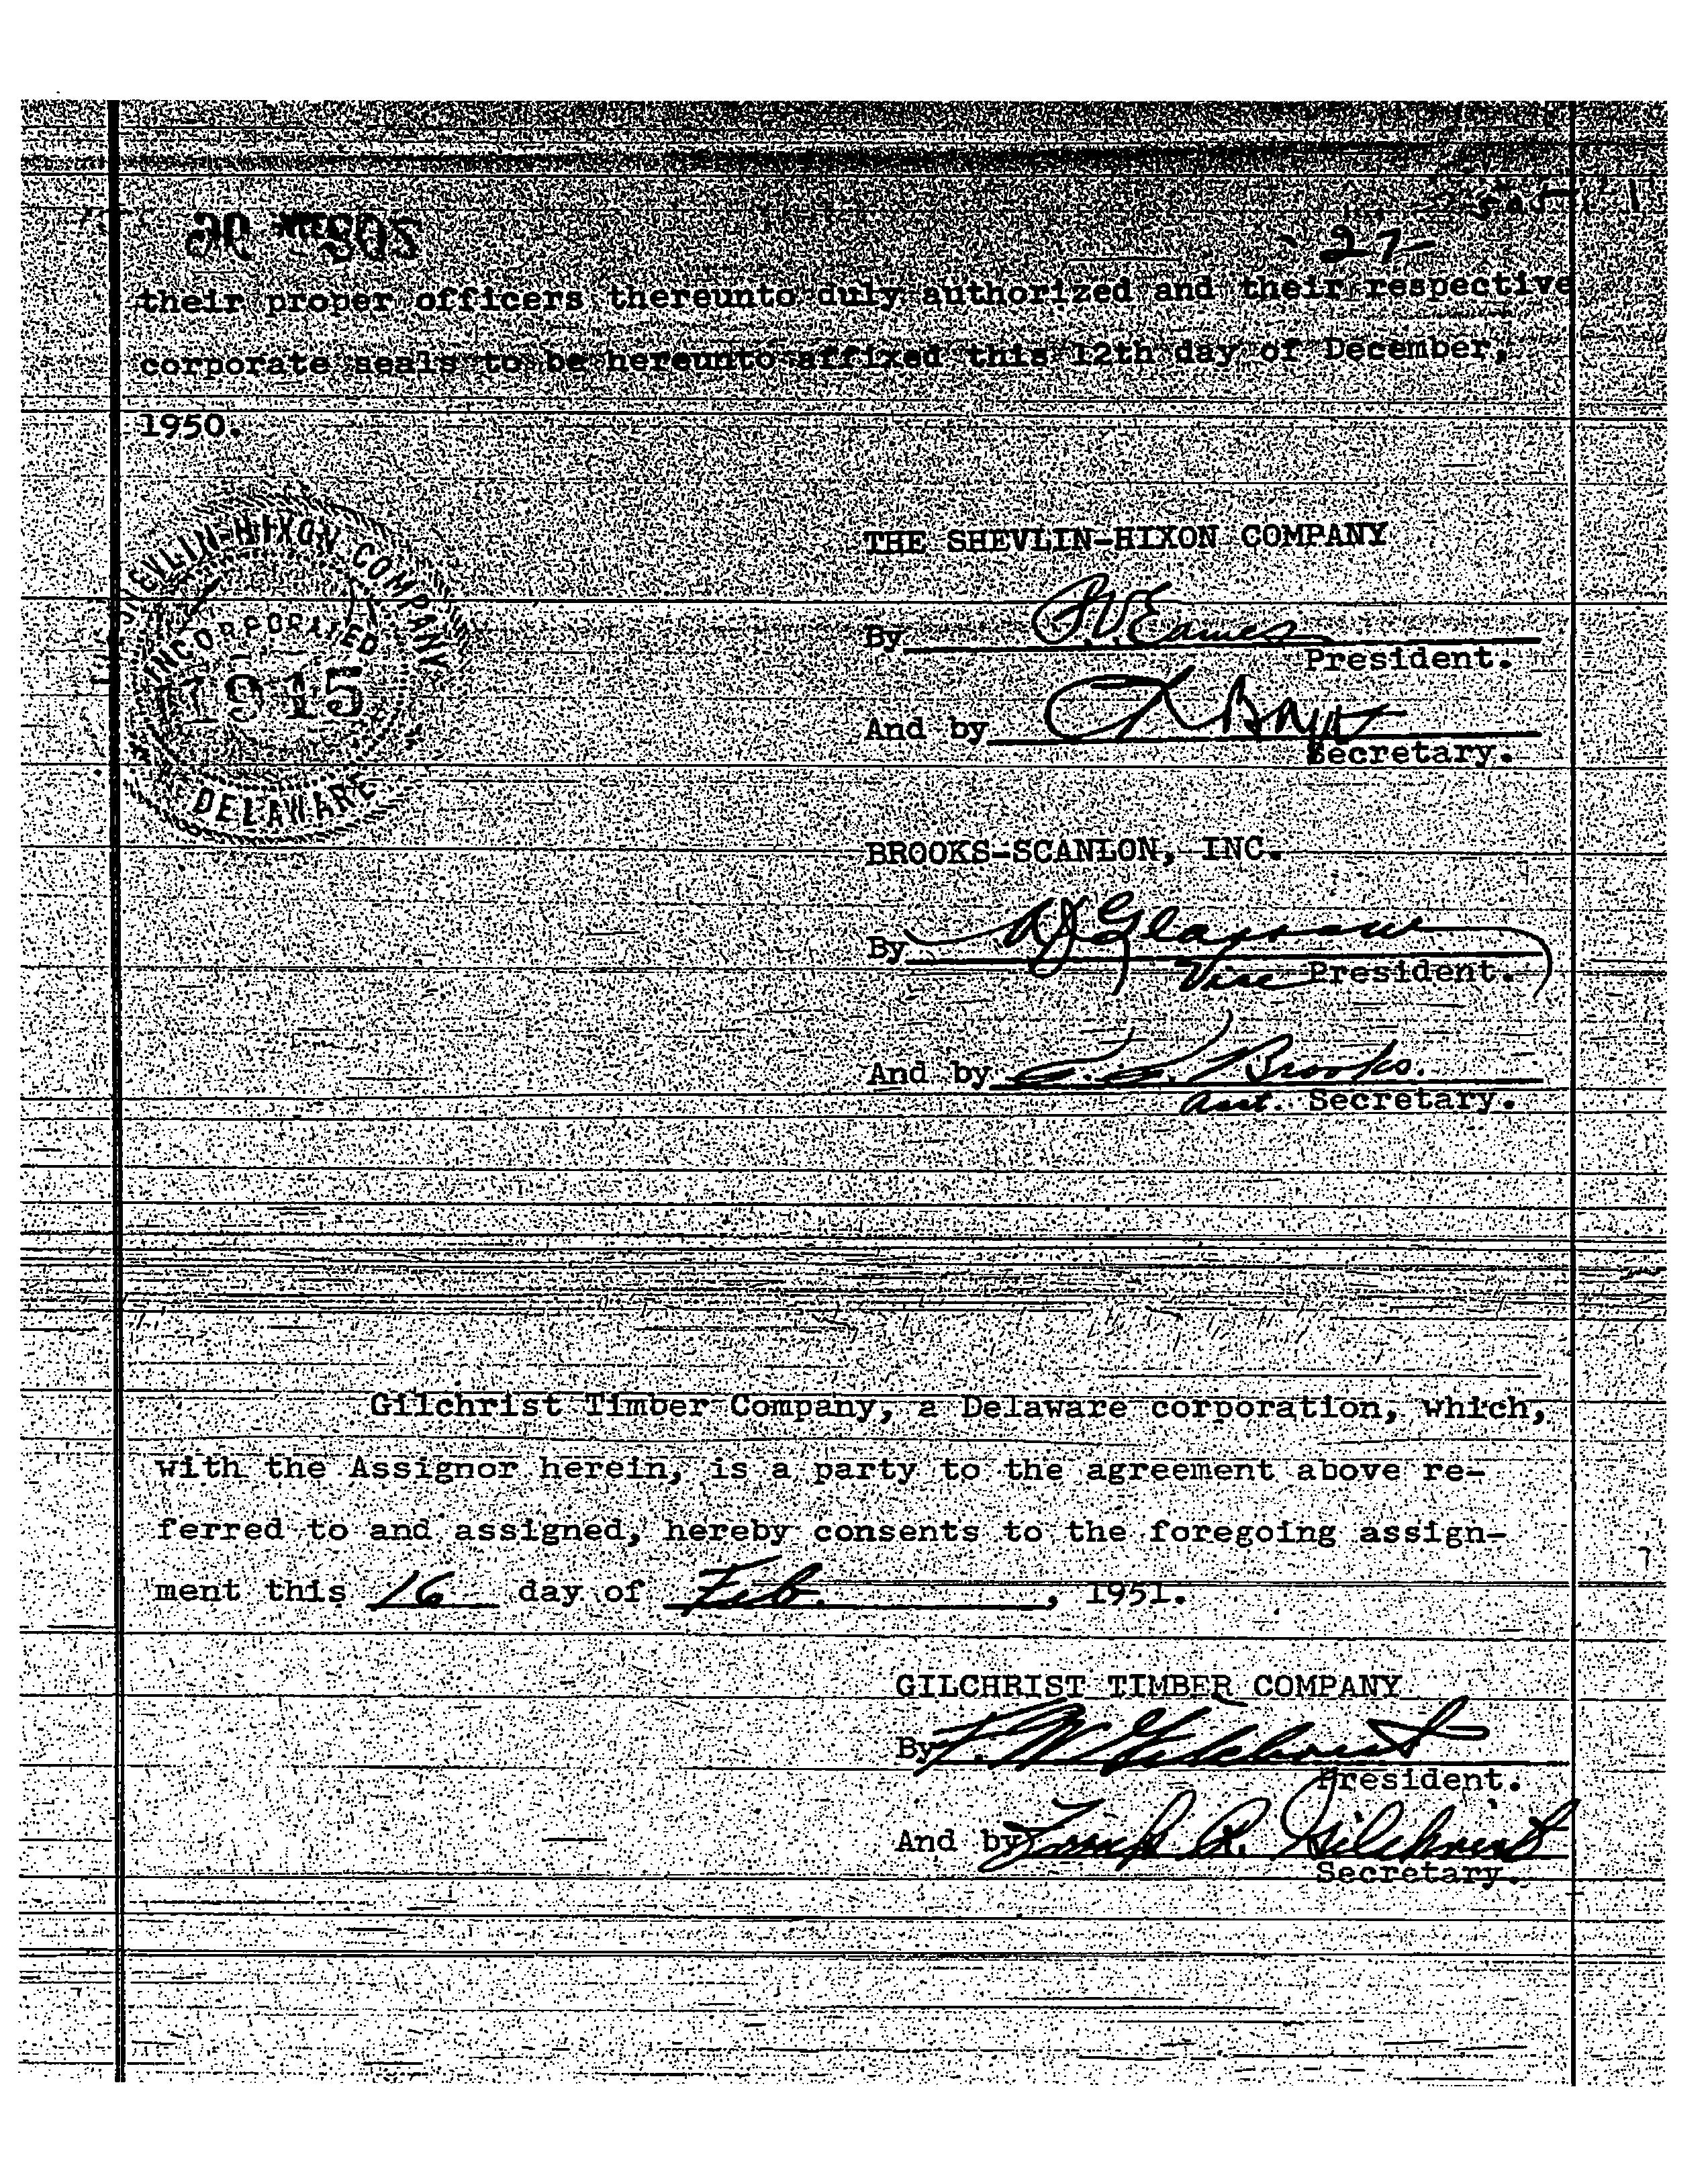 27
their proper officers thereunto duly authorized and their respective
corporate seals to be hereunto affixed this 12th day of December,
1950.
SHEVLIN-HIXON COMPANY
INCORPORATED
1915
DELAWARE
THE SHEVLIN-HIXON COMPANY
By
President.
And by
Secretary.
BROOKS-SCANLON, INC.
By
Vice President.
And by Brooks.
Asst. Secretary.
Gilchrist Timber Company, a Delaware corporation, which,
with the Assignor herein, is a party to the agreement above re-
ferred to and assigned, hereby consents to the foregoing assign-
ment this 16 day of Feb. , 1951.
GILCHRIST TIMBER COMPANY
By Gilchrist
President.
And by Frank R. Gilchrist
Secretary.